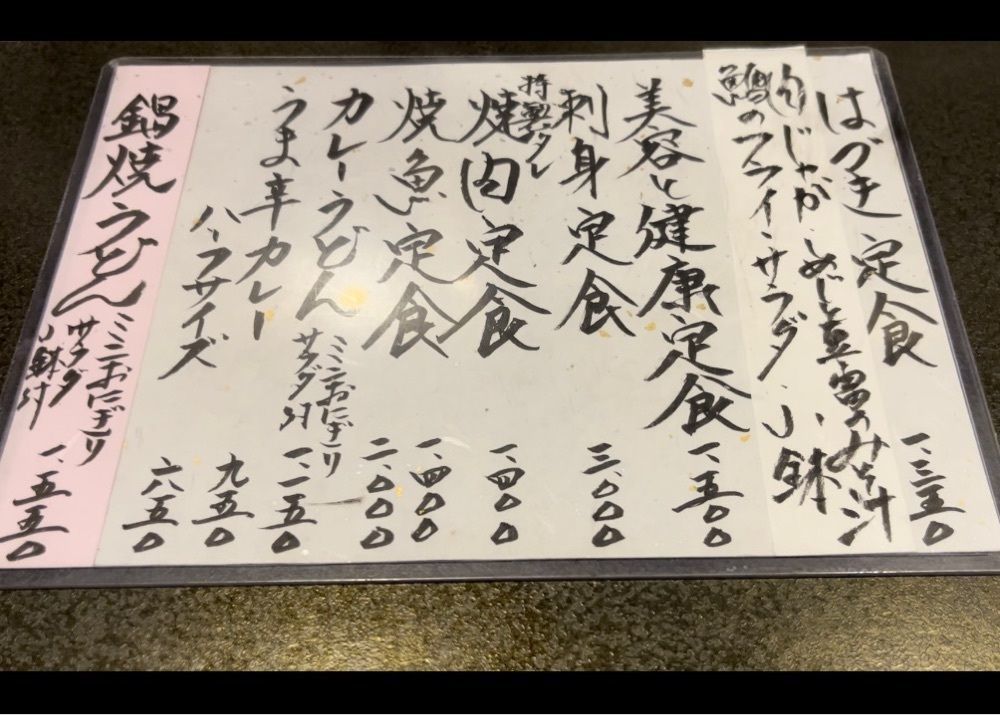 はづき定食 一、三五〇
肉じゃが しめじと豆富のみそ汁
鯛のフライ・サラダ 小鉢
美容と健康定食 一、五〇〇
刺身定食 三、〇〇〇
特製タレ
焼肉定食 一、四〇〇
焼魚定食 一、四〇〇
二、〇〇〇
カレーうどん ミニおにぎり
サラダ付 一、一五〇
うま辛カレー 九五〇
ハーフサイズ 六五〇
鍋焼うどん ミニおにぎり
サラダ
小鉢付 一、五五〇